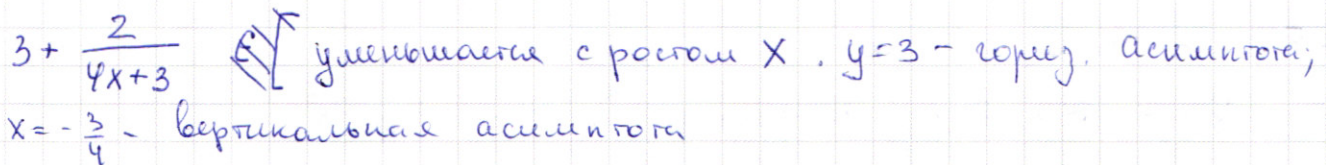 3 + 2/(4x+3) уменьшается с ростом x. y=3 - гориз. асимптота;
x = -3/4 - вертикальная асимптота